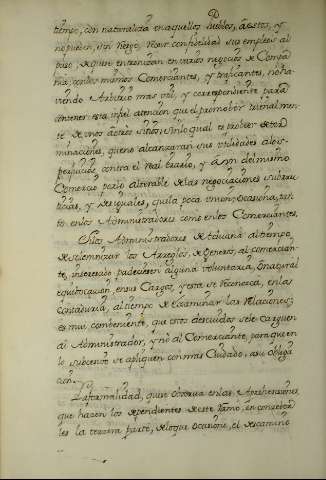 tiempo, con naturaleza en aquellos Pueblos, á estos, y
no pueden, sin riesgo, poner con fidelidad sus empleos al
paso, que se entrometan en varios negocios de Compa
nia, con los mismos Comerciantes, y traficantes, no ha
viendo Arbitrio mas util, y correspondiente para
contener esta infiel atencion que el promoverlos
te de unos á otros sitios; sin lo qual
minaciones, que no alcanzaran sus utilidades á los
perjuicios contra el real Erario, y aun del mismo
Comercio por lo alterable de las negociaciones
ticias, y desiguales, que la poca union, ocasiona, tan
to en los Administradores como en los Comerciantes.
Si los Administradores de Aduana al tiempo
de los Arreglos, de Generos, al comercian
te, interesado padeciesen alguna voluntaria, ó natural
equivocacion en sus Cargos, y esta se reconozca, en la
contaduria, al tiempo de examinar las relaciones;
es mui conveniente, que estos descuidos se le carguen
al Administrador, y nó al Comerciante, para que en
lo subcesivo se apliquen con más Cuidado, á su obliga
cion.
La formalidad, que se observa en las Aprehensiones
que hacen los dependientes de este Ramo, en
les la tercera parte, de lo que ocasione, el descamino